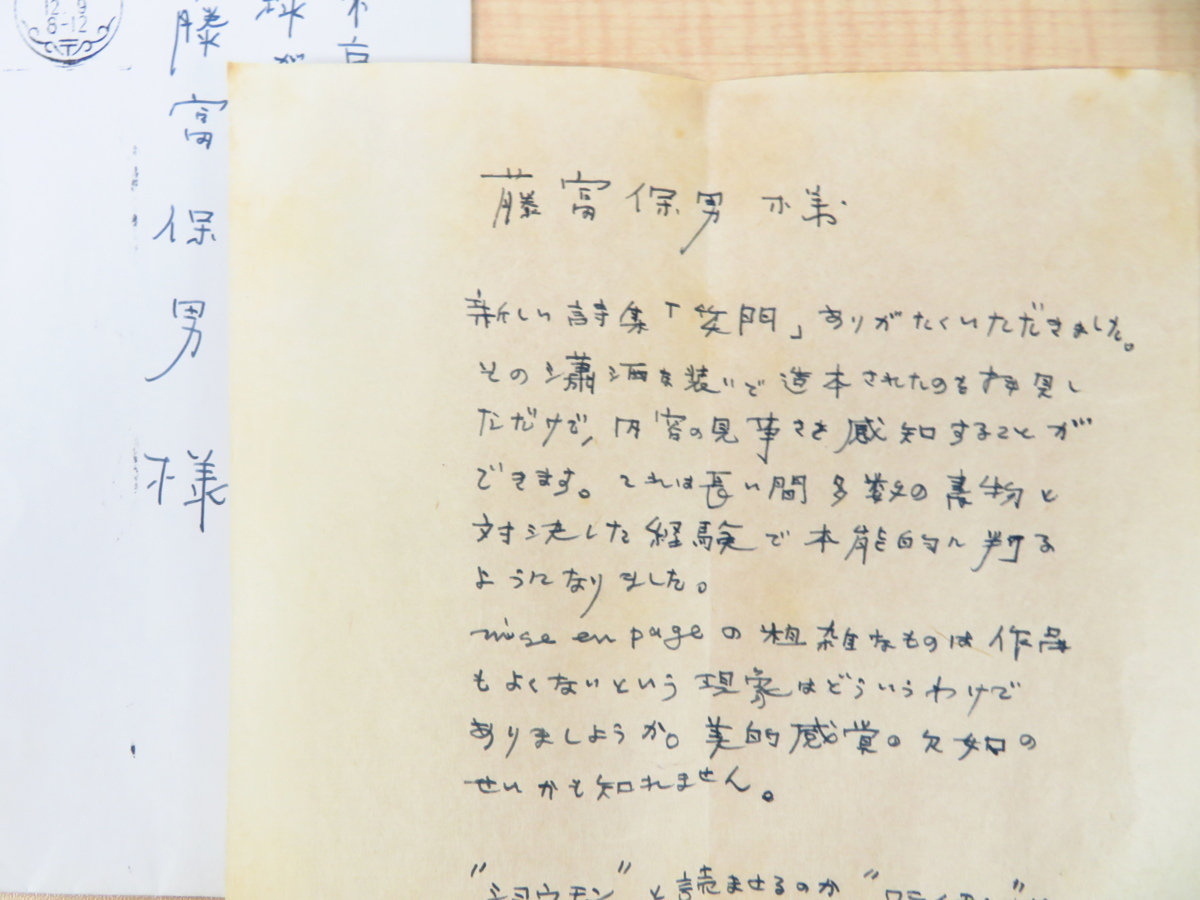 12.9
8-12
東京
様
藤富保男様
藤富保男様
新しい詩集「笑門」ありがたくいただきました。
その瀟洒な装いで造本されたのを拝見し
ただけで、内容の見事さを感知することが
できます。これは長い間多数の書物と
対決した経験で本能的に判る
ようになりました。
mise en pageの粗雑なものは作品
もよくないという現象はどういうわけで
ありましようか。美的感覚の欠如の
せいかも知れません。
"ショウモン"と読ませるのか"ワライモン"